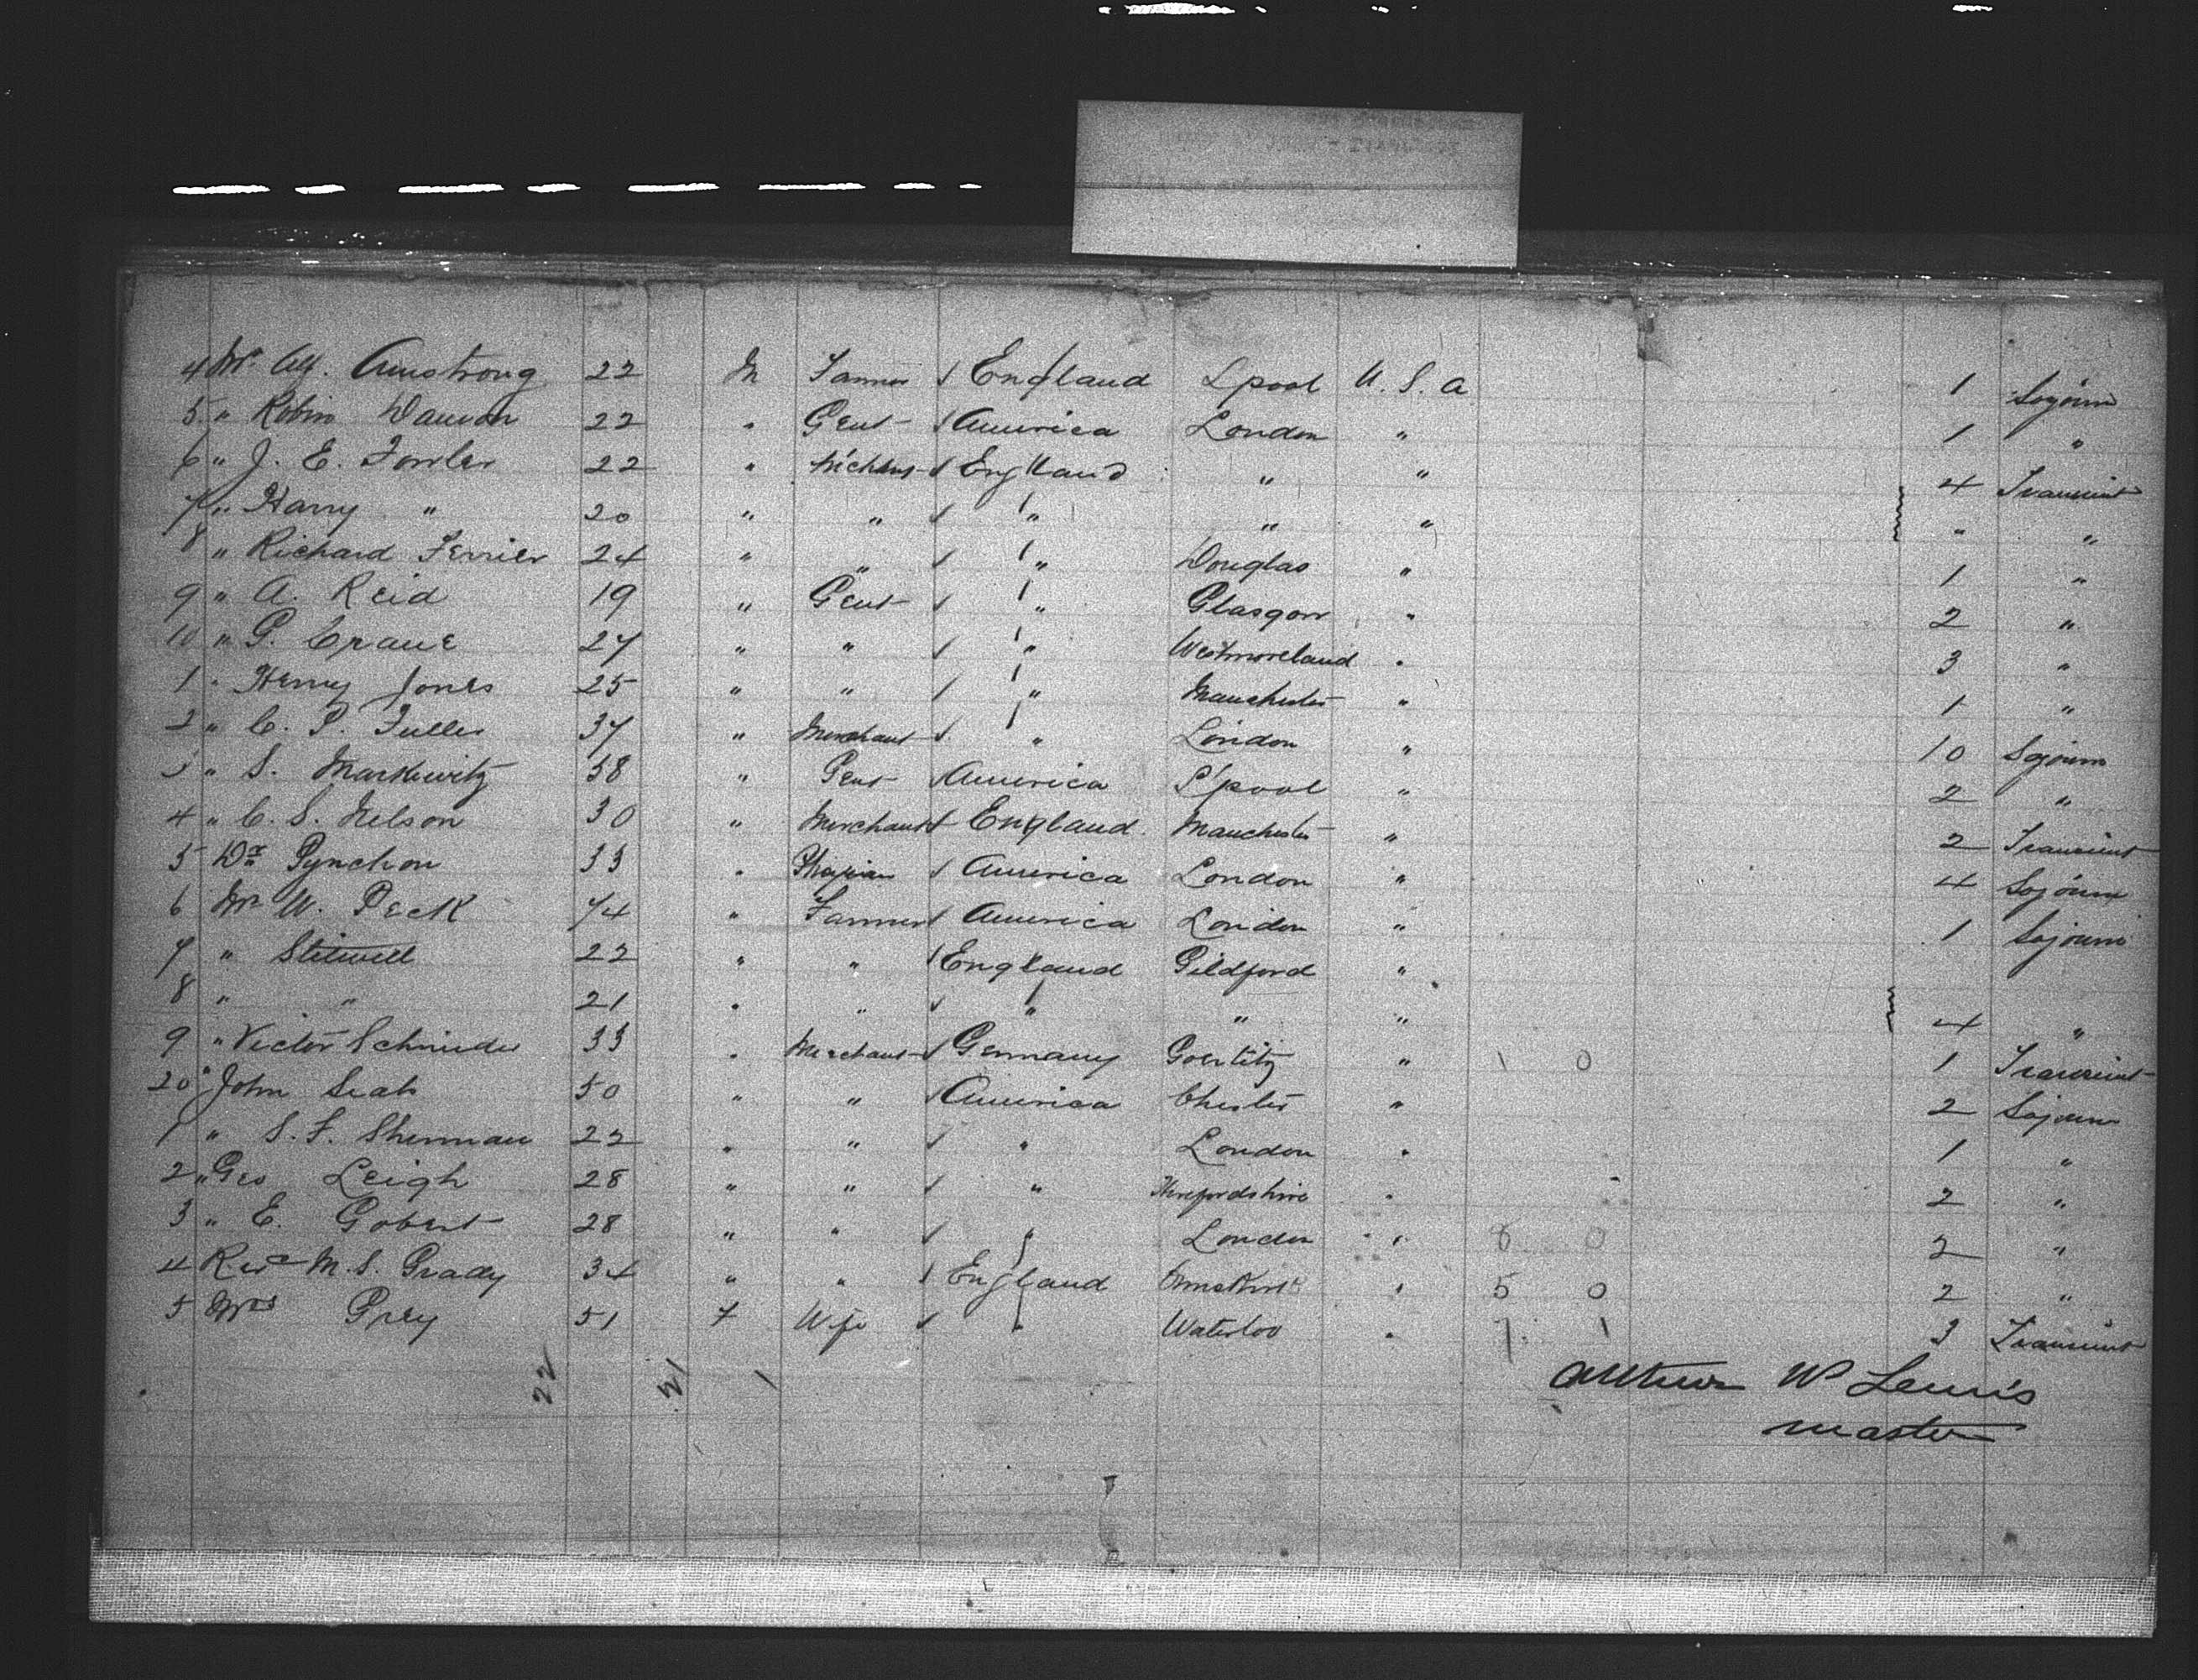 4 Mr Alf. Amstrong 22 M Farmer England Lpool U.S.A 1 Sojourn
5 " Robin Dawson 22 " Gent America London " 1 "
6 " J. E. Fowler 22 " England " " 4 Transient
7 " Harry " 20 " " " " " " "
8 " Richard Ferrier 24 " " " Douglas " 1 "
9 " A. Reid 19 " Gent " Glasgow " 2 "
10 " G. Crane 27 " " " Westmoreland " 3 "
1 " Henry Jones 25 " " " Manchester " 1 "
2 " C. P. Fuller 37 " Merchant " London " 10 Sojourn
3 " S. Markewitz 58 " Gent America L'pool " 2 "
4 " C. S. Nelson 30 " Merchant England Manchester " 2 Transient
5 Dr Pynchon 33 " America London " 4 Sojourn
6 Mr W. Peck 74 " Farmer America London " 1 Sojourn
7 " Stilwell 22 " " England Gildford "
8 " " 21 " " " " " 4 "
9 " Victor Schnieder 33 " Merchant Germany Goerlitz " 1 0 1 Transient
20 " John Seab 50 " " America Chester " 2 Sojourn
1 " S. F. Sherman 22 " " " London " 1 "
2 " Geo Leigh 28 " " " Herefordshire " 2 "
3 " E. Gobert 28 " " " London " 6 0 2 "
4 Revd M. S. Grady 34 " " England Ormskirk " 5 0 2 "
5 Mrs Grey 51 F Wife " Waterloo " 7 1 3 Transient
22 21 1
Arthur W Lewis
master